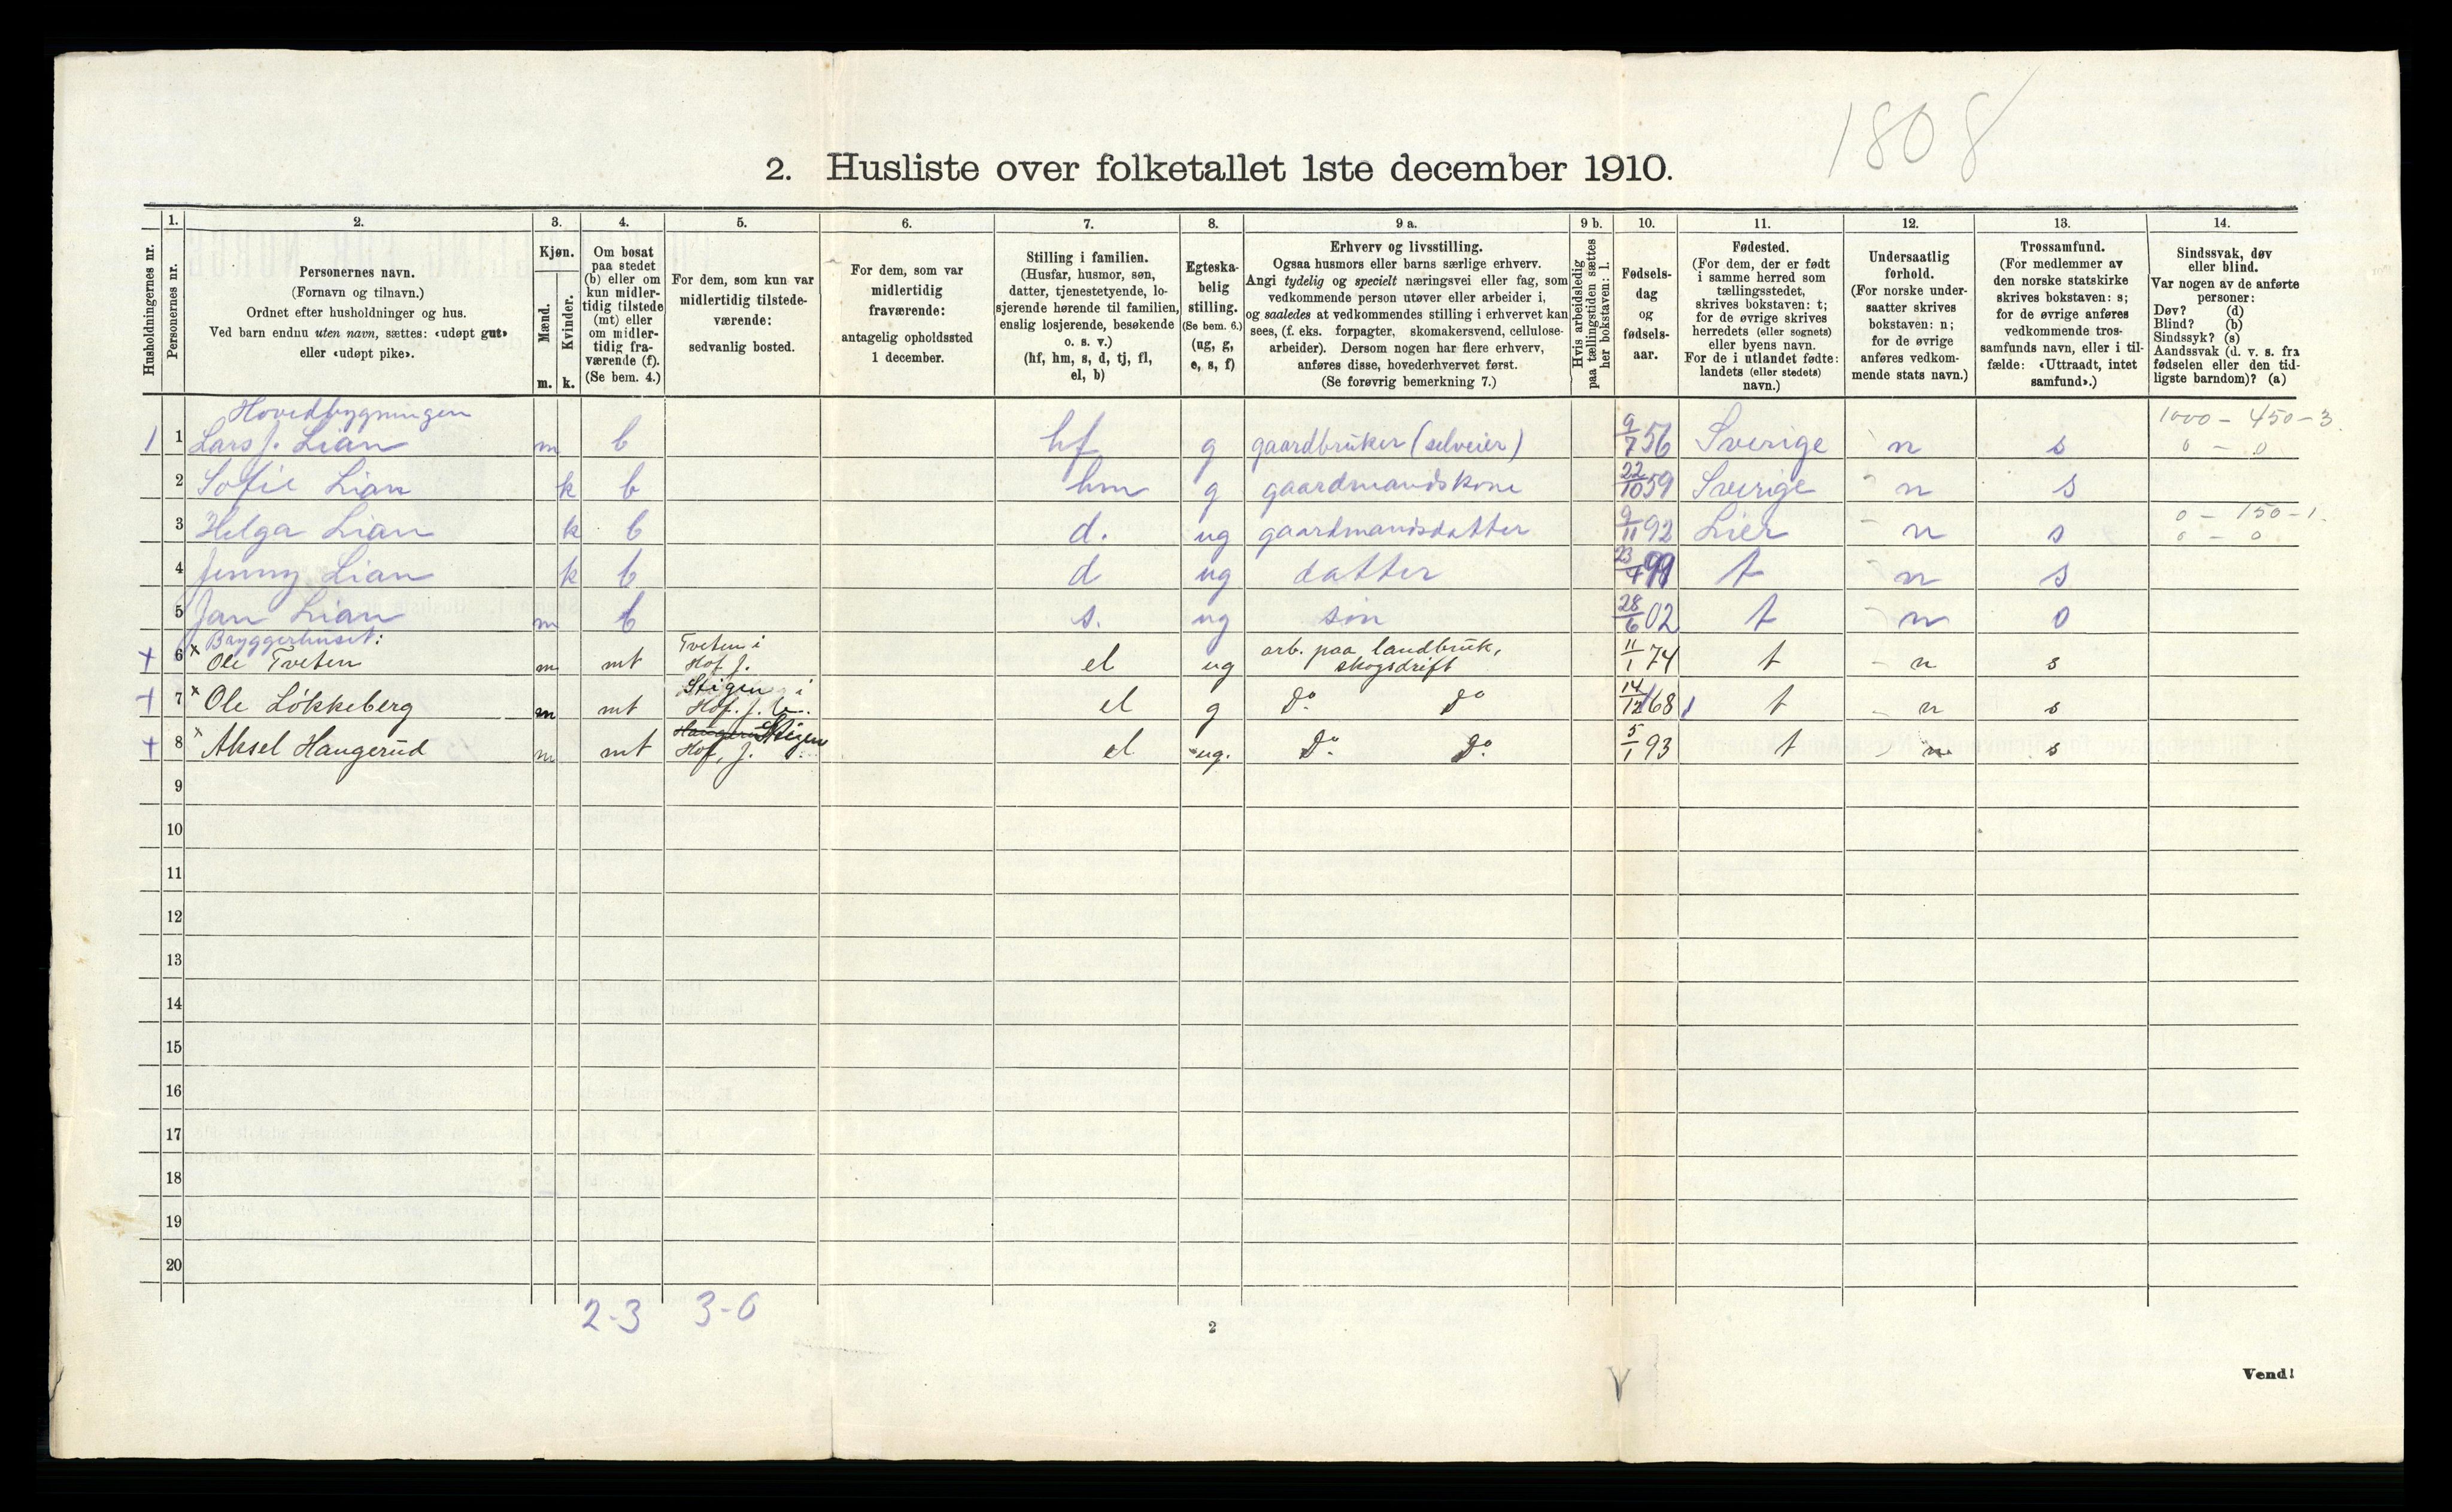 1808
2. Husliste over folketallet 1ste december 1910.
Husholdningernes nr.
1.
Personernes nr.
2.
Personernes navn.
(Fornavn og tilnavn.)
Ordnet efter husholdninger og hus.
Ved barn endnu uten navn, sættes: «udøpt gut»
eller «udøpt pike».
3.
Kjøn.
Mænd.
Kvinder.
m. k.
4.
Om bosat
paa stedet
(b) eller om
kun midler-
tidig tilstede
(mt) eller
om midler-
tidig fra-
værende (f).
(Se bem. 4.)
5.
For dem, som kun var
midlertidig tilstede-
værende:
sedvanlig bosted.
6.
For dem, som var
midlertidig
fraværende:
antagelig opholdssted
1 december.
7.
Stilling i familien.
(Husfar, husmor, søn,
datter, tjenestetyende, lo-
sjerende hørende til familien,
enslig losjerende, besøkende
o. s. v.)
(hf, hm, s, d, tj, fl,
el, b)
8.
Egteska-
belig
stilling.
(Se bem. 6.)
(ug, g,
e, s, f)
9 a.
Erhverv og livsstilling.
Ogsaa husmors eller barns særlige erhverv.
Angi tydelig og specielt næringsvei eller fag, som
vedkommende person utøver eller arbeider i,
og saaledes at vedkommendes stilling i erhvervet kan
sees, (f. eks. forpagter, skomakersvend, cellulose-
arbeider). Dersom nogen har flere erhverv,
anføres disse, hovederhvervet først.
(Se forøvrig bemerkning 7.)
9 b.
Hvis arbeidsledig
paa tællingstiden sættes
her bokstaven: l.
10.
Fødsels-
dag
og
fødsels-
aar.
11.
Fødested.
(For dem, der er født
i samme herred som
tællingsstedet,
skrives bokstaven: t;
for de øvrige skrives
herredets (eller sognets)
eller byens navn.
For de i utlandet fødte:
landets (eller stedets)
navn.)
12.
Undersaatlig
forhold.
(For norske under-
saatter skrives
bokstaven: n;
for de øvrige
anføres vedkom-
mende stats navn.)
13.
Trossamfund.
(For medlemmer av
den norske statskirke
skrives bokstaven: s;
for de øvrige anføres
vedkommende tros-
samfunds navn, eller i til-
fælde: «Uttraadt, intet
samfund».)
14.
Sindssvak, døv
eller blind.
Var nogen av de anførte
personer:
Døv? (d)
Blind? (b)
Sindssyk? (s)
Aandssvak (d. v. s. fra
fødselen eller den tid-
ligste barndom)? (a)
Hovedbygningen 1000 - 450 - 3.
1 1 Lars J. Lian m b hf g gaardbruker (selveier) 9/7 56 Sverige n s 0 - 0
2 Sofie Lian k b hm g gaardmandskone 22/10 59 Sverige n s
0 - 150 - 1.
3 Helga Lian k b d. ug gaardmandsdatter 9/11 92 Lier n s 0 - 0
4 Jenny Lian k b d ug datter 23/4 99 t n s
5 Jan Lian m b s. ug søn 28/6 02 t n s
Bryggerhuset: Tveten i arb. paa landbruk,
+ 6 x Ole Tveten m mt Hof J. el ug skogsdrift 11/1 74 t n s
Stigen i
+ 7 x Ole Løkkeberg m mt Hof. J. el g Do Do 14/12 68 t n s
Stigen
+ 8 x Aksel Haugerud m mt Hof, J. el ug. Do Do 5/1 93 t n s
9
10
11
12
13
14
15
16
17
18
19
20
2-3 3-0
2
Vend!